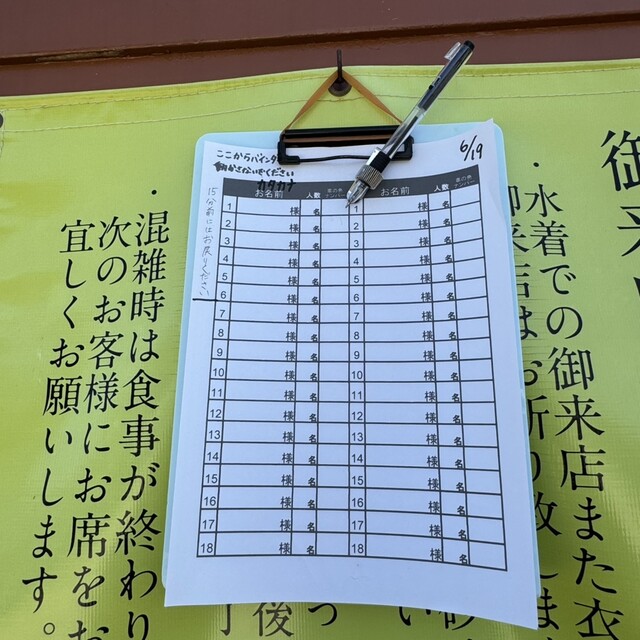 ここからバインダー
動かさないでください
カタカナ
6/19
15分前にはお戻りください
お名前 人数 車の色 ナンバー お名前 人数 車の色 ナンバー
1 様 名 1 様 名
2 様 名 2 様 名
3 様 名 3 様 名
4 様 名 4 様 名
5 様 名 5 様 名
6 様 名 6 様 名
7 様 名 7 様 名
8 様 名 8 様 名
9 様 名 9 様 名
10 様 名 10 様 名
11 様 名 11 様 名
12 様 名 12 様 名
13 様 名 13 様 名
14 様 名 14 様 名
15 様 名 15 様 名
16 様 名 16 様 名
17 様 名 17 様 名
18 様 名 18 様 名
御来
・水着での御来店また衣
御来店はお断り致しま
・混雑時は食事が終わり
次のお客様にお席をお
宜しくお願いします。